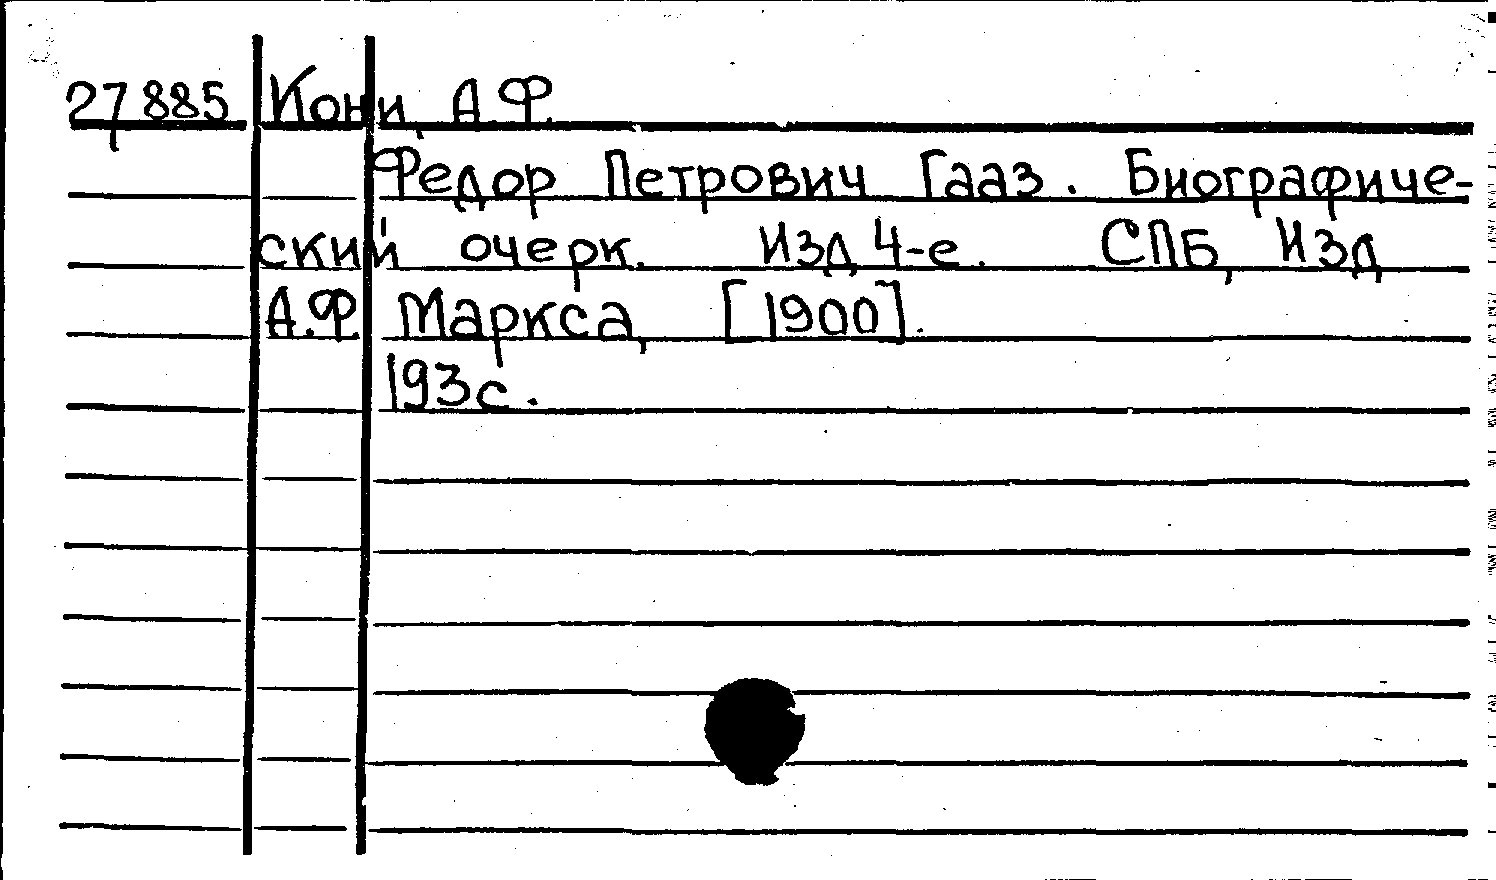 27885 Кони, А.Ф.
Федор Петрович Гааз. Биографиче-
ский очерк. Изд, 4-е. СПБ, Изд,
А.Ф. Маркса, [1900].
193с.